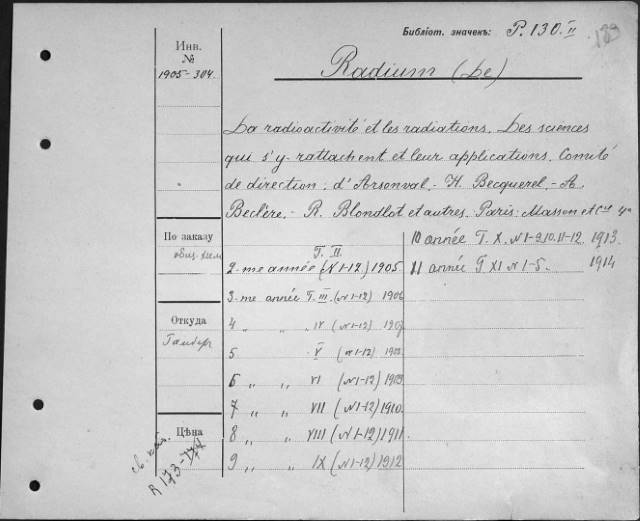 Библіот. значекъ: P. 130. II
183
Инв.
№
1905-304.
Radium (Le)
La radioactivité et les radiations. Les sciences
qui s'y rattachent et leur applications. Comité
de direction: d'Arsonval.- H. Becquerel.- A.
Beclère.- R. Blondlot et autres. Paris. Masson et Cie 4°
По заказу
общ. хим
Откуда
Цѣна
св. кат.
R 173-174
T. II.
2-me année (N 1-12) 1905.
3-me année T. III. (N 1-12) 1906
4 " " IV (N 1-12) 1907
5 V (N 1-12) 1908.
6 " " VI (N 1-12) 1909
7 " " VII (N 1-12) 1910.
8 " " VIII (N 1-12) 1911
9 " " IX (N 1-12) 1912
10 année T. X. N 1-9.10.11-12. 1913
11 année T XI N 1-5. 1914